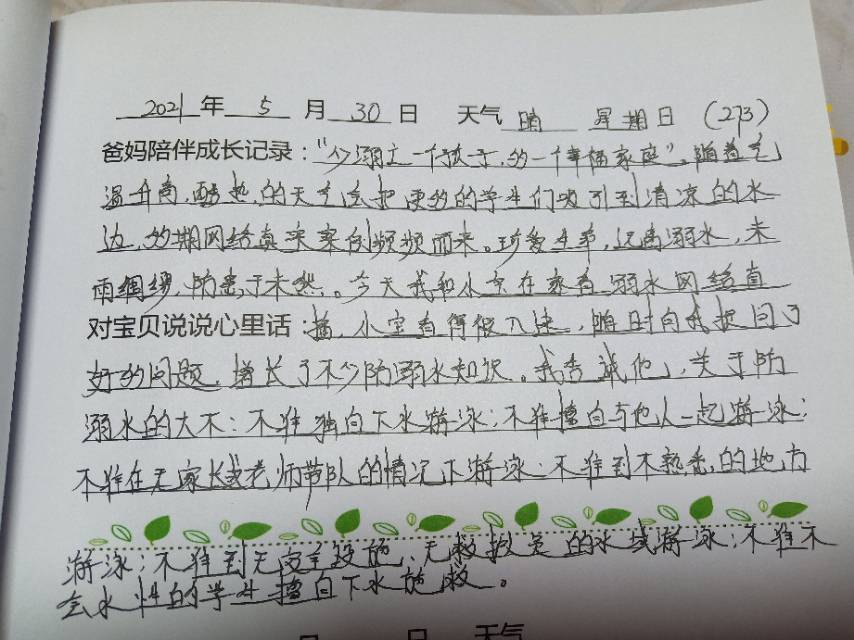 2021年 5 月 30 日 天气 晴 星期日 (273)
爸妈陪伴成长记录："少溺亡一个孩子，的一个幸福家庭"。随着气
温升高，酷热的天气会把更多的学生们吸引到清凉的水
边，效期网络真实案例频频而来。珍爱生命，远离溺水，未
雨绸缪，防患于未然。今天我和小宝在家看溺水网络直
对宝贝说说心里话：播，小宝看得很入迷，随时向我提问了
好的问题，增长了不少防溺水知识。我告诫他，关于防
溺水的六不：不准独自下水游泳；不准擅自与他人一起游泳；
不准在无家长或老师带队的情况下游泳；不准到不熟悉的地方
游泳；不准到无安全设施、无救援员的水域游泳；不准不
会水性的学生擅自下水施救。
月 日 天气